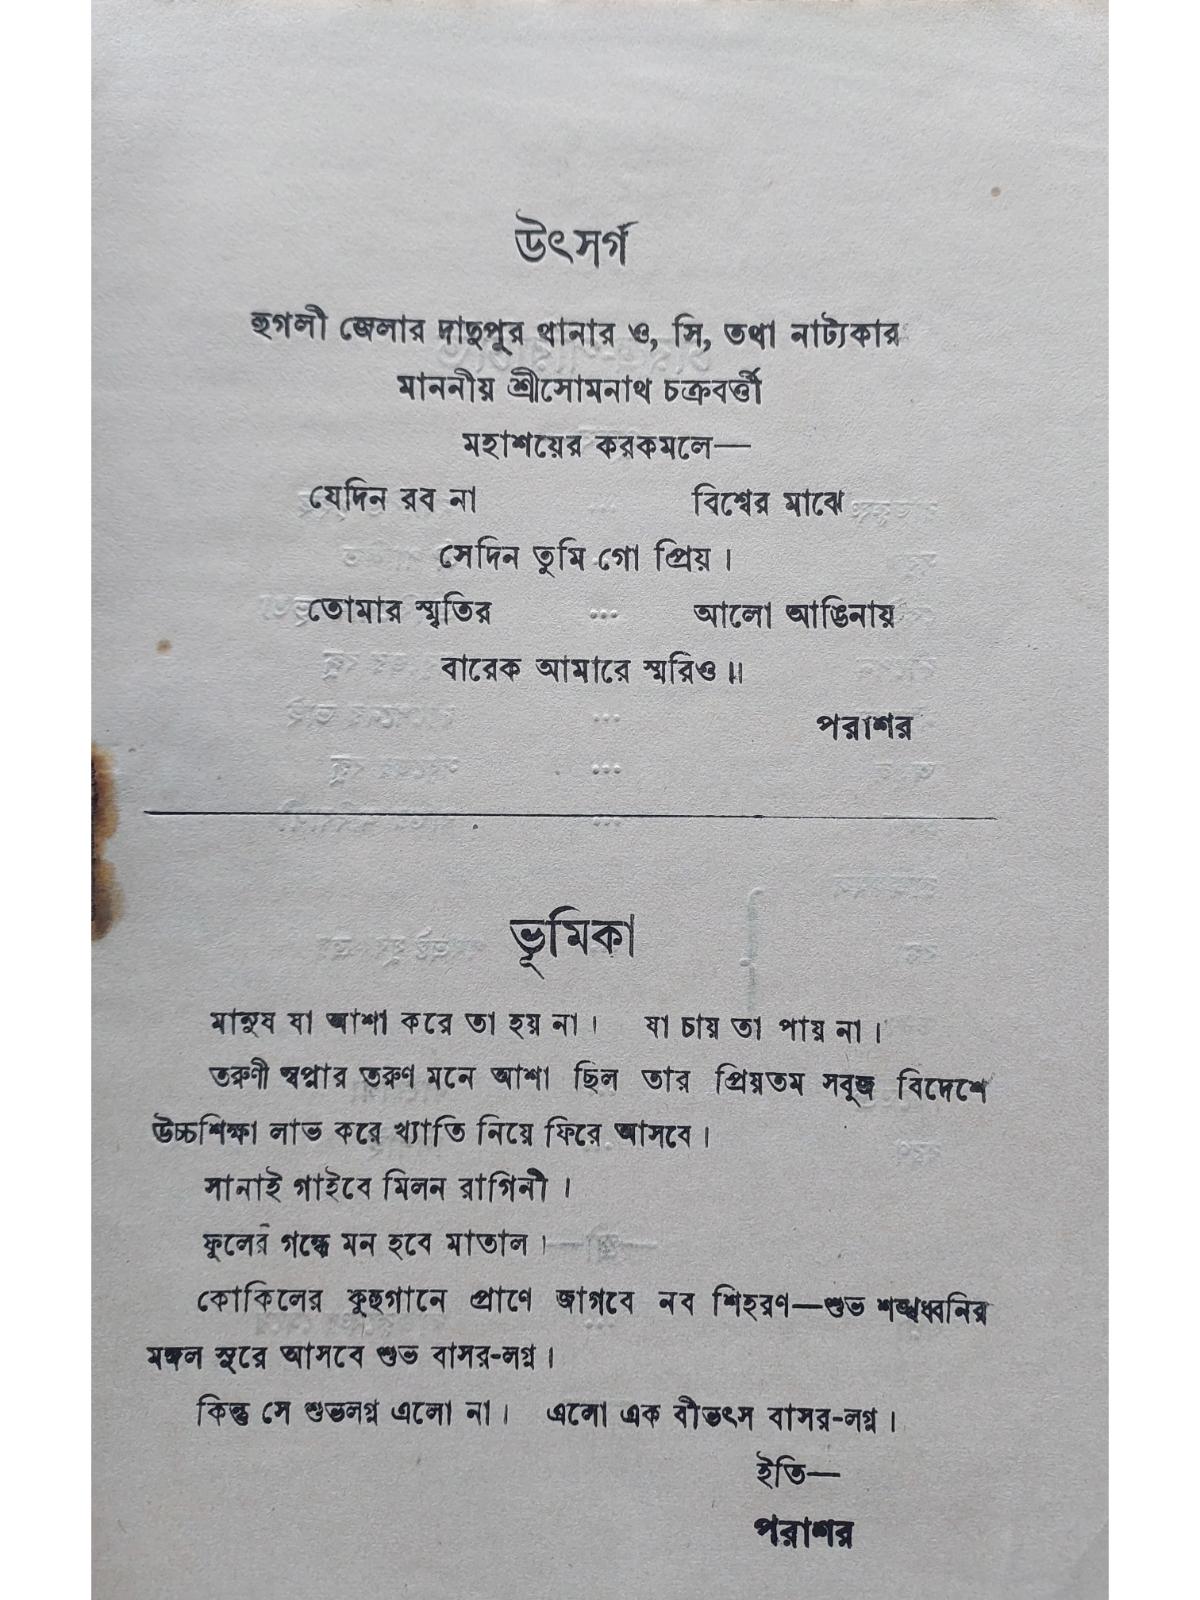 উৎসর্গ
হুগলী জেলার দাদুপুর থানার ও, সি, তথা নাট্যকার
মাননীয় শ্রীসোমনাথ চক্রবর্ত্তী
মহাশয়ের করকমলে—
যেদিন রব না বিশ্বের মাঝে
সেদিন তুমি গো প্রিয় ।
তোমার স্মৃতির ... আলো আঙিনায়
বারেক আমারে স্মরিও ॥
পরাশর
ভূমিকা
মানুষ যা আশা করে তা হয় না । যা চায় তা পায় না ।
তরুণী স্বপ্নার তরুণ মনে আশা ছিল তার প্রিয়তম সবুজ বিদেশে
উচ্চশিক্ষা লাভ করে খ্যাতি নিয়ে ফিরে আসবে ।
সানাই গাইবে মিলন রাগিনী ।
ফুলের গন্ধে মন হবে মাতাল ।
কোকিলের কুহুগানে প্রাণে জাগবে নব শিহরণ—শুভ শঙ্খধ্বনির
মঙ্গল সুরে আসবে শুভ বাসর-লগ্ন ।
কিন্তু সে শুভলগ্ন এলো না । এলো এক বীভৎস বাসর-লগ্ন ।
ইতি—
পরাশর